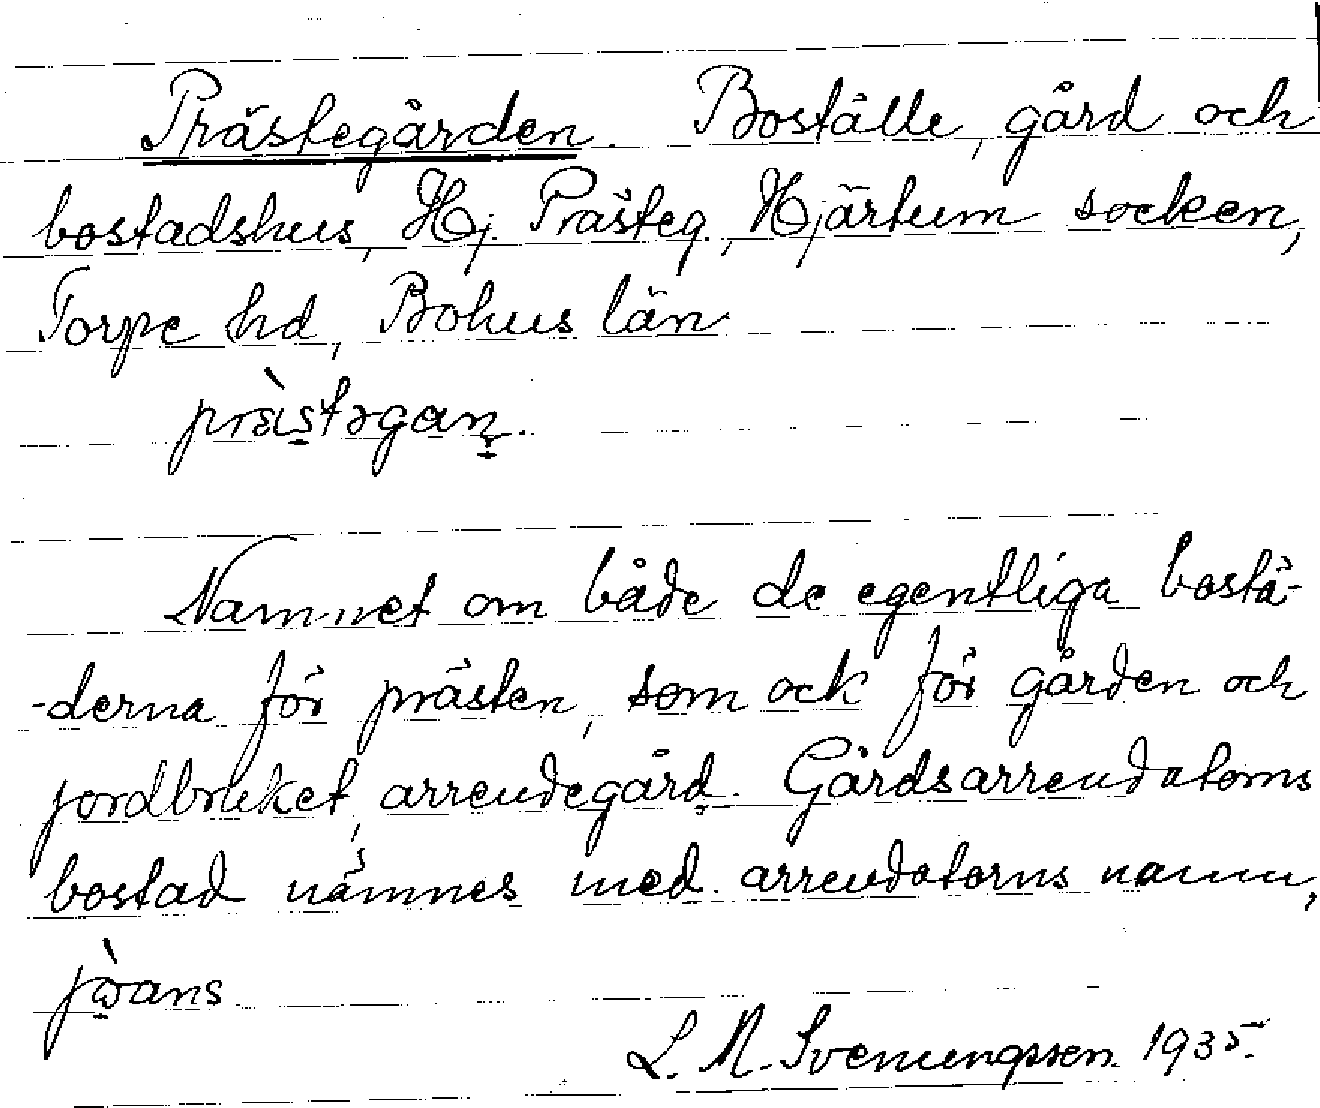 Prästegården. Boställe, gård och
bostadshus, Hj. Prästeg., Hjärtum socken,
Torpe hd, Bohus län
prästəgaṇ.
Namnet om både de egentliga bostä-
-derna för prästen, som ock för gården och
jordbruket, arrendegård. Gårdsarrendatorns
bostad nämnes med arrendatorns namn,
L. N. Svenungssen. 1935.